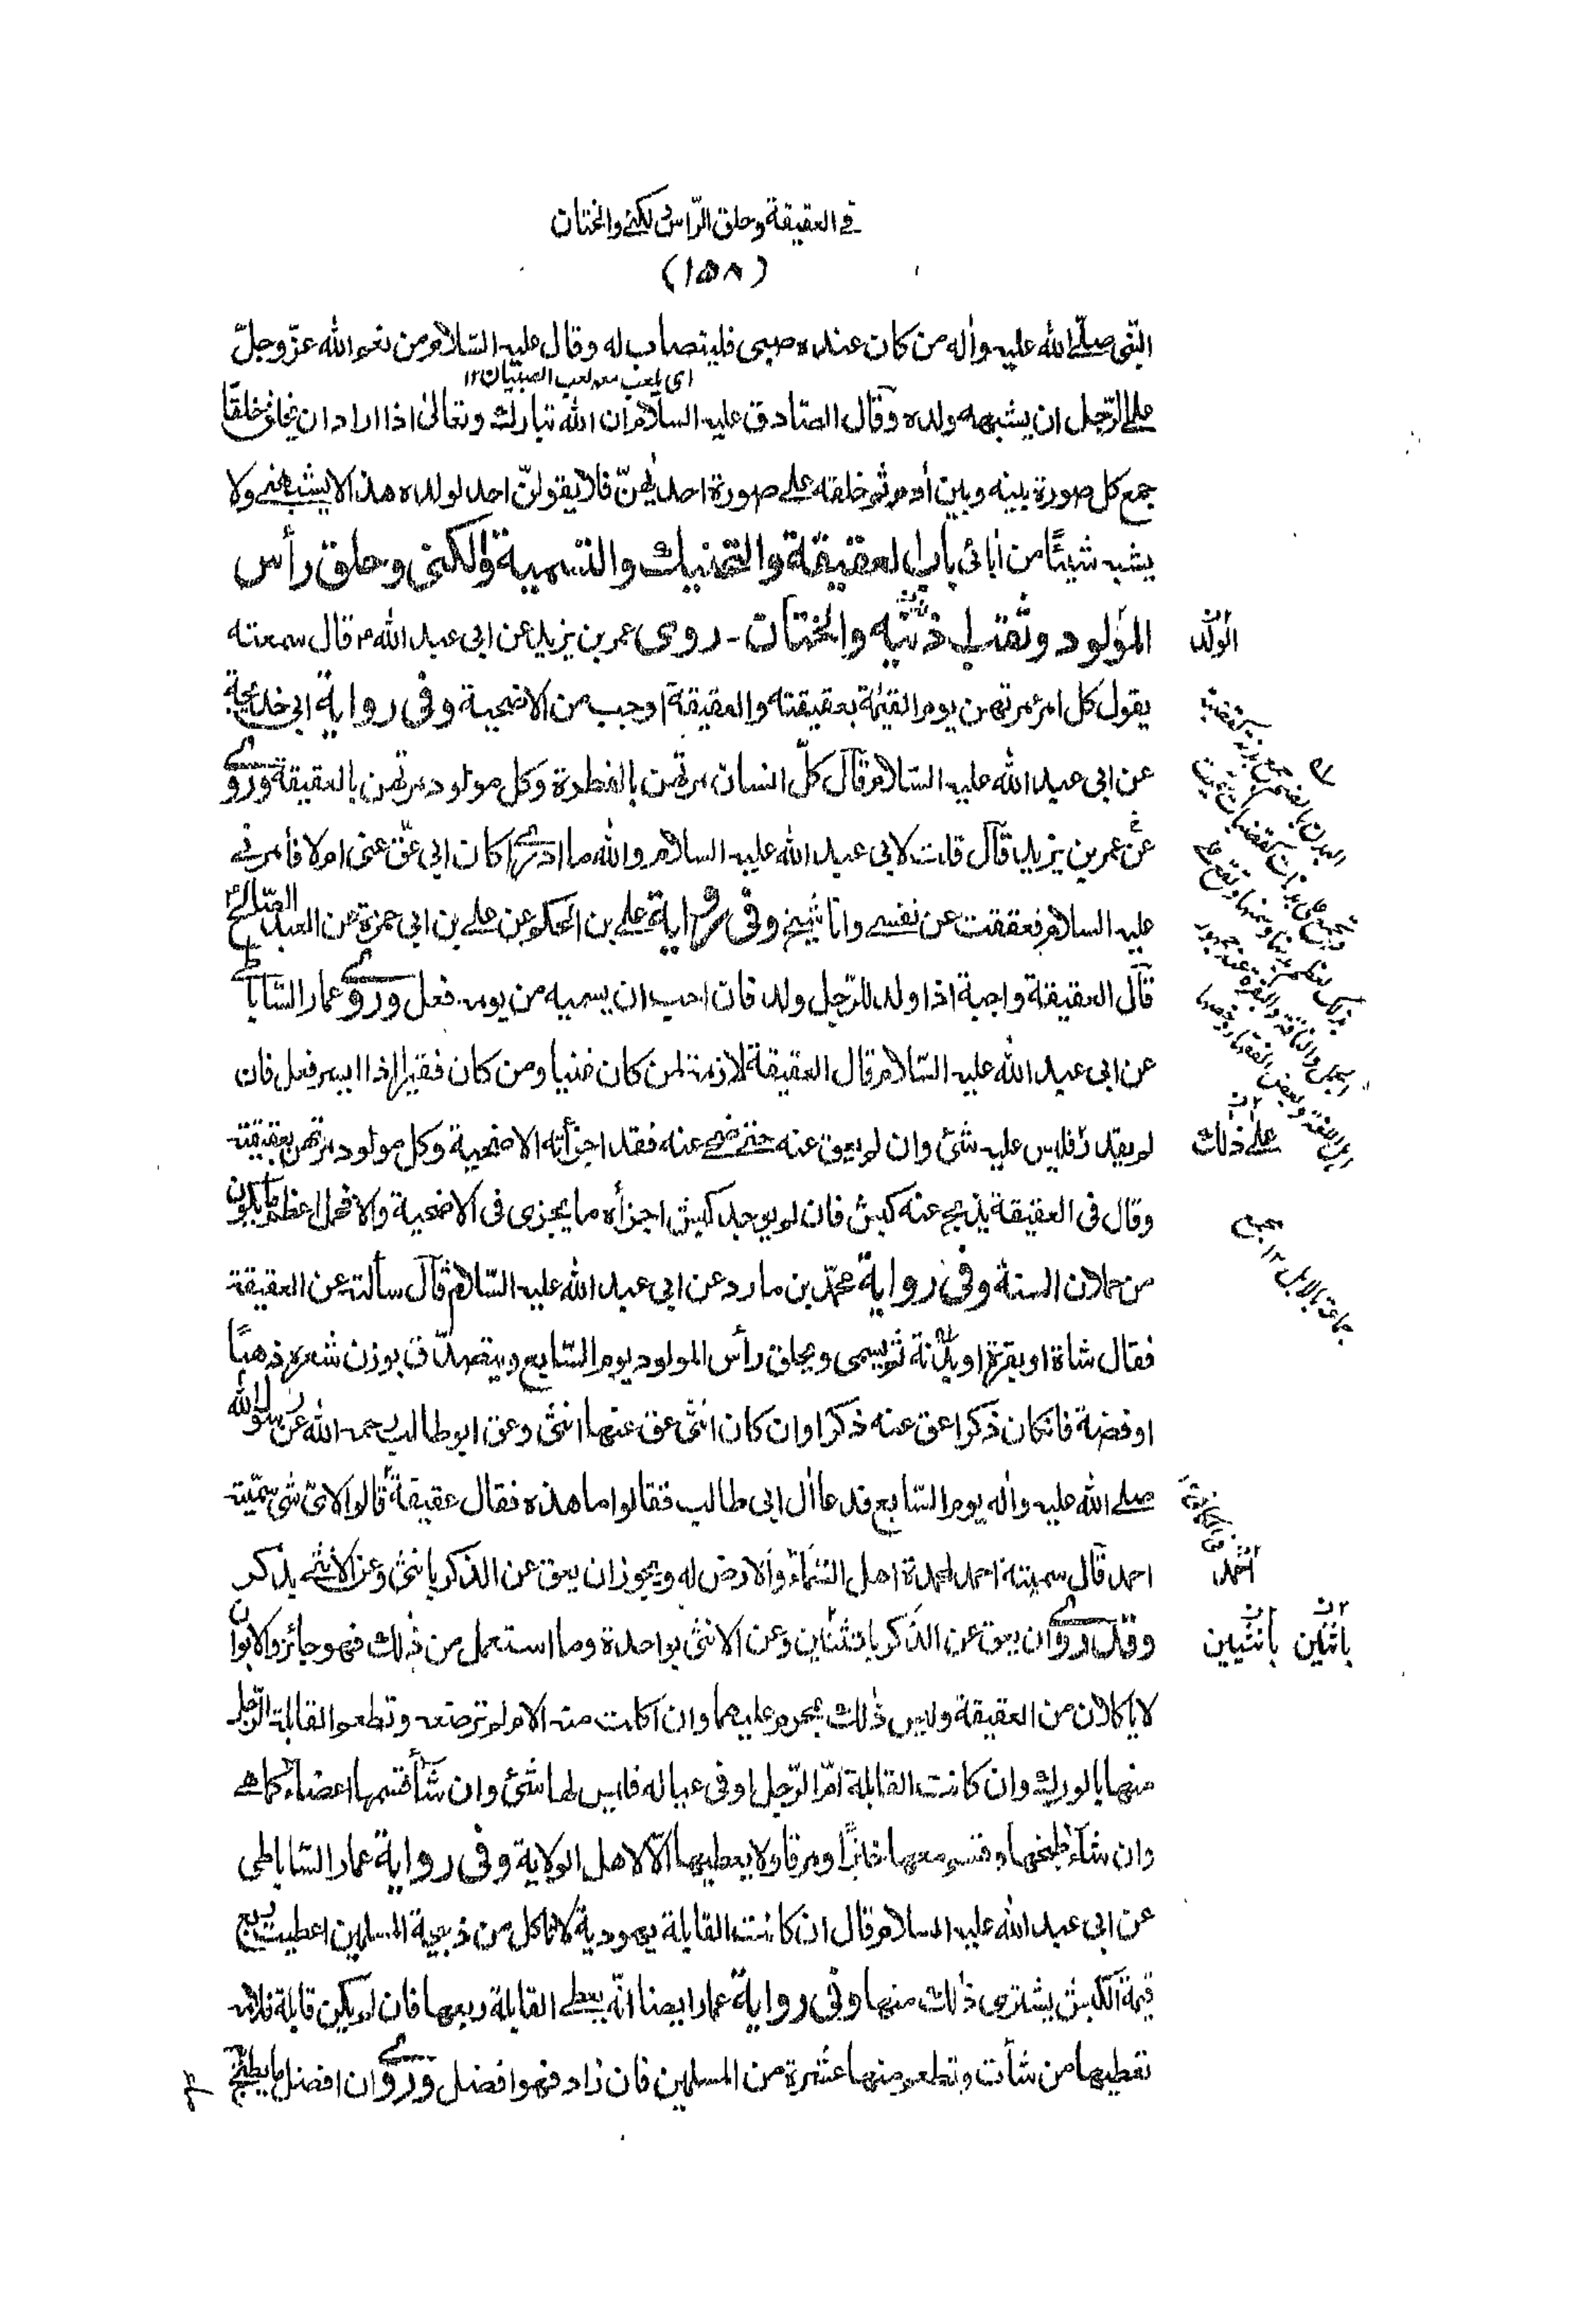 في العقيقة وحلق الرّأس والكنى والختان
(١٥٨)
النّبي صلّى الله عليه واٰله من كان عنده صبي فليتصاب له وقال عليه السّلام من نعم الله عزّ وجلّ
اي يلعب معه لعب الصبيان ١٢
على الرّجل ان يشبهه ولده وقال الصّادق عليه السلام ان الله تبارك وتعالى اذا اراد ان يخلق خلقًا
جمع كل صورة بينه وبين اٰدم ثم خلقه على صورة احدٰيهنّ فلا يقولنّ احد لولده هذا لا يشبهني ولا
يشبه شيئًا من اٰبائي باب العقيقة والتحنيك والتسمية والكنى وحلق رأس
المولود وثقب اذنيه والختان - روى عمر بن يزيد عن ابي عبد الله ع قال سمعته
الولد
يقول كل امرء مرتهن يوم القيٰمة بعقيقته والعقيقة اوجب من الاضحية وفي رواية ابي خديجة
عن ابي عبد الله عليه السّلام قال كلّ انسان مرتهن بالفطرة وكل مولود مرتهن بالعقيقة وروي
عن عمر بن يزيد قال قلت لابي عبد الله عليه السلام والله ما ادري كان ابي عقّ عني ام لا فأمرني
عليه السلام فعققت عن نفسي وانا شيخ وفي رواية علي بن الحكم عن علي بن ابي حمزة عن العبد الصّالح ع
قال العقيقة واجبة اذا ولد للرّجل ولد فان احب ان يسميه من يومه فعل وروي عمار السّاباطي
عن ابي عبد الله عليه السّلام قال العقيقة لازمة لمن كان غنيا ومن كان فقيرا اذا ايسر فعل فان
لم يقدر فليس عليه شئ وان لم يعق عنه حتى ضحى عنه فقد اجزأته الاضحية وكل مولود مرتهن بعقيقته
على ذلك
وقال في العقيقة يذبح عنه كبش فان لم يوجد كبش اجزأه ما يجزى في الاضحية والا فحمل اعظم ما يكون
من حملان السنة وفي رواية محمّد بن مارد عن ابي عبد الله عليه السّلام قال سألته عن العقيقة
فقال شاة او بقرة او بدنة ثم يسمى ويحلق رأس المولود يوم السّابع ويتصدّق بوزن شعره ذهبًا
او فضة فان كان ذكرا عق عنه ذكرا وان كان انثى عق عنها انثى وعق ابو طالب رحمه الله عن رسول الله
صلى الله عليه واٰله يوم السّابع فدعا اٰل ابي طالب فقالوا ما هذه فقال عقيقة قالوا لايّ شئ سمّيته
احمد قال سميته احمد لمحمدة اهل السّماء والارض له ويجوز ان يعق عن الذكر بانثى وعن الانثى بذكر
وقد روي ان يعق عن الذكر بانثتين وعن الانثى بواحدة وما استعمل من ذلك فهو جائز والابوان
باثنين بانثيين
لا ياكلان من العقيقة وليس ذلك بمحرم عليهما وان اكلت منه الام لم ترضعه وتطعم القابلة الرّجل
منها بالورك وان كانت القابلة امّ الرّجل او في عياله فليس لها شئ وان شاء قسمها اعضاء كما هي
وان شاء طبخها وقسم معها خبزًا ومرقا ولا يعطيها الّا لاهل الولاية وفي رواية عمار السّاباطي
عن ابي عبد الله عليه السلام قال ان كانت القابلة يهودية لا تاكل من ذبيحة المسلمين اعطيت ربع
قيمة الكبش يشترى ذلك منها وفي رواية عمار ايضا انّه يعطى القابلة ربعها فان لم يكن قابلة فلامه
تعطيها من شاءت وتطعم منها عشرة من المسلمين فان زاد فهو افضل وروي ان افضل ما يطبخ